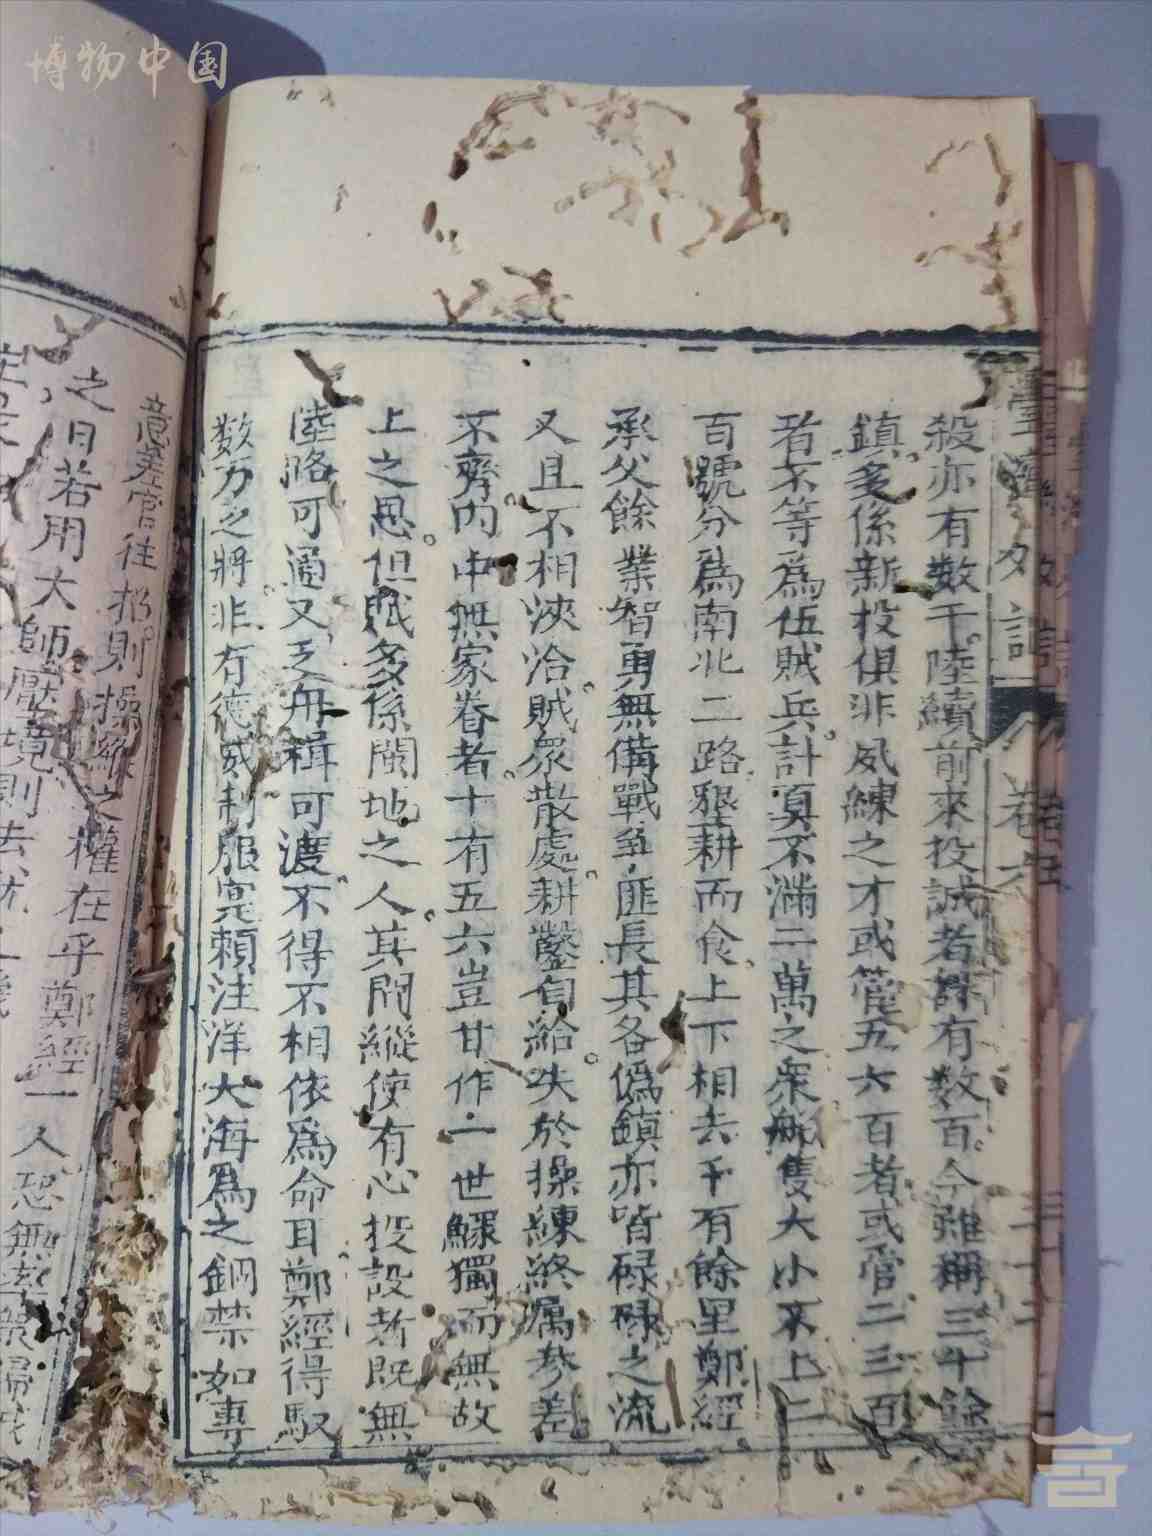 博物中国
臺灣外記 卷六
殺亦有数千陸續前來投誠者計有数百今雖稱三十餘
鎮多係新投俱非夙練之才或管五六百者或管二三百
者不等爲伍賊兵計算不滿二萬之衆船隻大小不上二
百號分爲南北二路墾耕而食上下相去千有餘里鄭經
承父餘業智勇無備戰爭匪長其各僞鎮亦皆碌碌之流
又且不相浹洽賊衆散處耕鑿自給失於操練終属參差
不齊内中無家眷者十有五六豈甘作一世鰥獨而無故
上之思但賊多係閩地之人其間縱使有心投設者既無
陸路可通又乏舟楫可渡不得不相依爲命耳鄭經得馭
数万之將非有德威制服寔賴汪洋大海爲之錮禁如專
意差官往招則操縱之權在乎鄭經一人恐無率衆歸誠
之日若用大師壓境則去